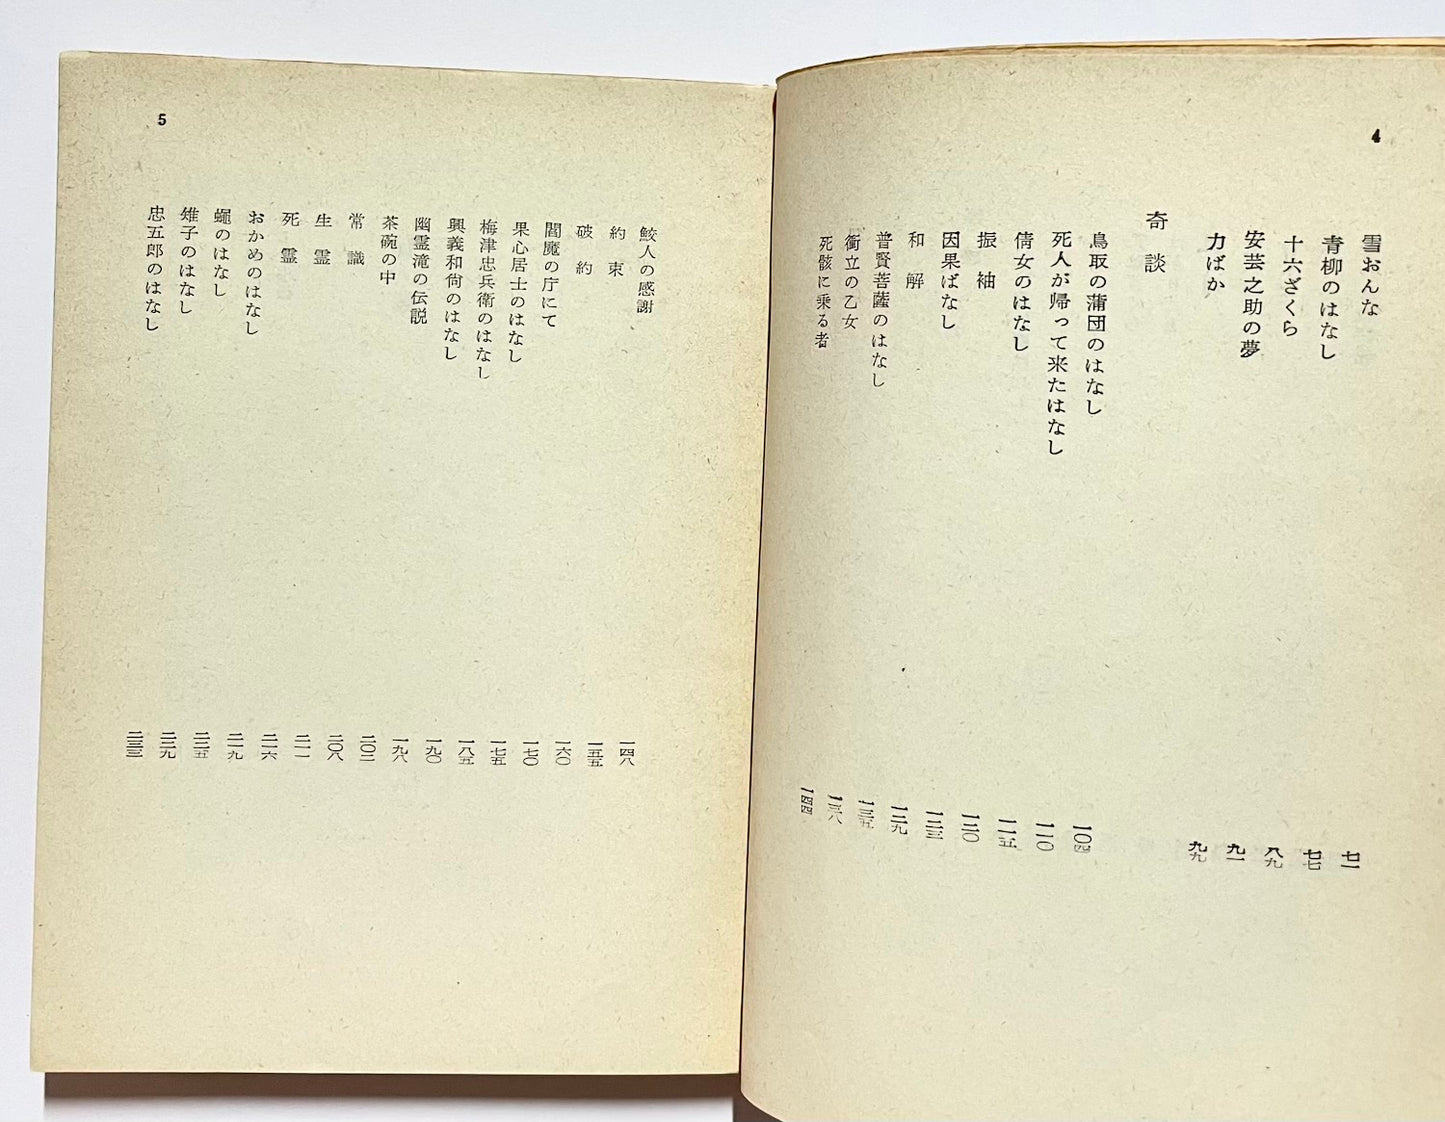 4
雪おんな 七一
青柳のはなし 七七
十六ざくら 八九
安芸之助の夢 九一
力ばか 九九
奇談
鳥取の蒲団のはなし 一〇四
死人が帰って来たはなし 一一〇
倩女のはなし 一一五
振袖 一二〇
因果ばなし 一二三
和解 一二九
普賢菩薩のはなし 一三五
衝立の乙女 一三八
死骸に乗る者 一四四
5
鮫人の感謝 一四八
約束 一五五
破約 一六〇
閻魔の庁にて 一七〇
果心居士のはなし 一七五
梅津忠兵衛のはなし 一八五
興義和尚のはなし 一九〇
幽霊滝の伝説 一九八
茶碗の中 二〇二
常識 二〇八
生霊 二一一
死霊 二一六
おかめのはなし 二一九
蠅のはなし 二二五
雉子のはなし 二二九
忠五郎のはなし 二三三